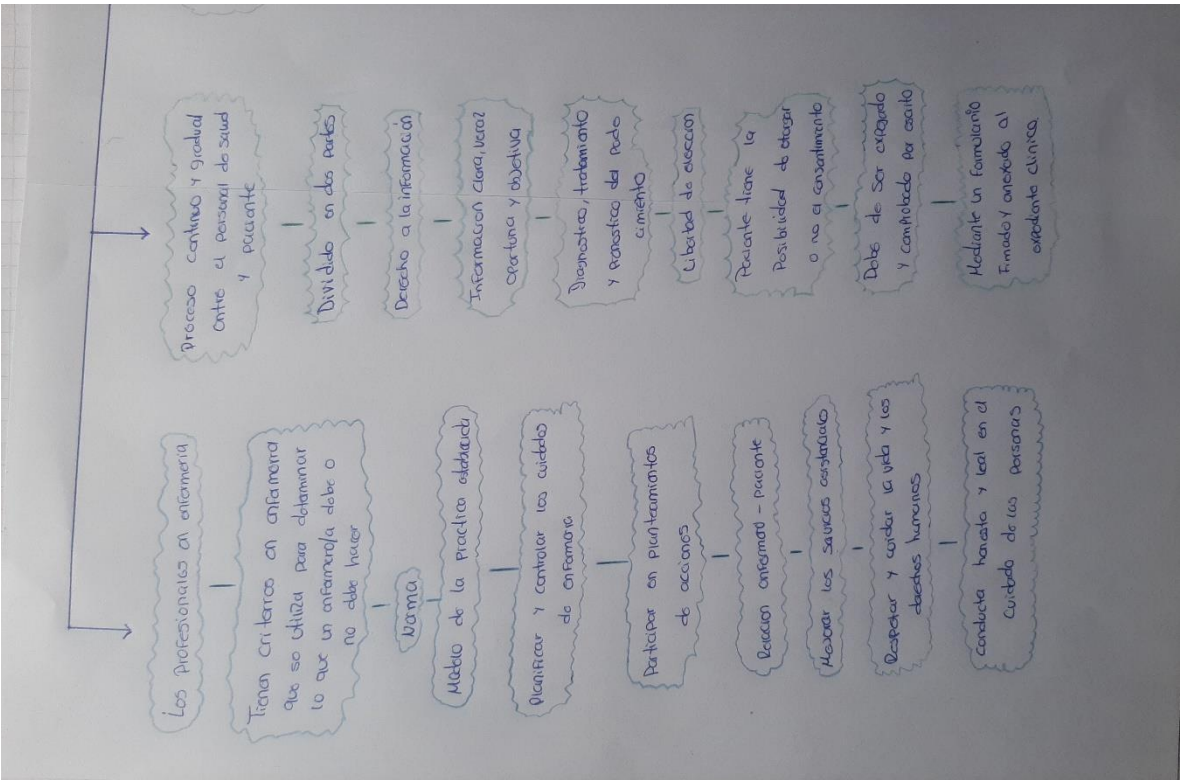 Los profesionales en enfermeria
Tienen Criterios en enfermeria
que se utiliza para determinar
lo que un enfermero/a debe o
no debe hacer
Norma
Modelo de la Practica
Planificar y controlar los cuidados
de enfermeria
Participar en planteamientos
de acciones
Relacion enfermero - paciente
Mejorar los servicios asistenciales
Respetar y cuidar la vida y los
derechos humanos
Conducta honesta y leal en el
Cuidado de las personas
Proceso continuo y gradual
entre el personal de salud
y paciente
Dividido en dos partes
Derecho a la información
Informacion clara, veraz
oportuna y objetiva
Diagnostico, tratamiento
y pronostico del Pade
cimiento
Libertad de eleccion
Paciente tiene la
Posibilidad de otorgar
o no el consentimiento
Debe de Ser expresado
y comprobado Por escrito
Mediante un formulario
firmado y anexado al
expediente clinico.